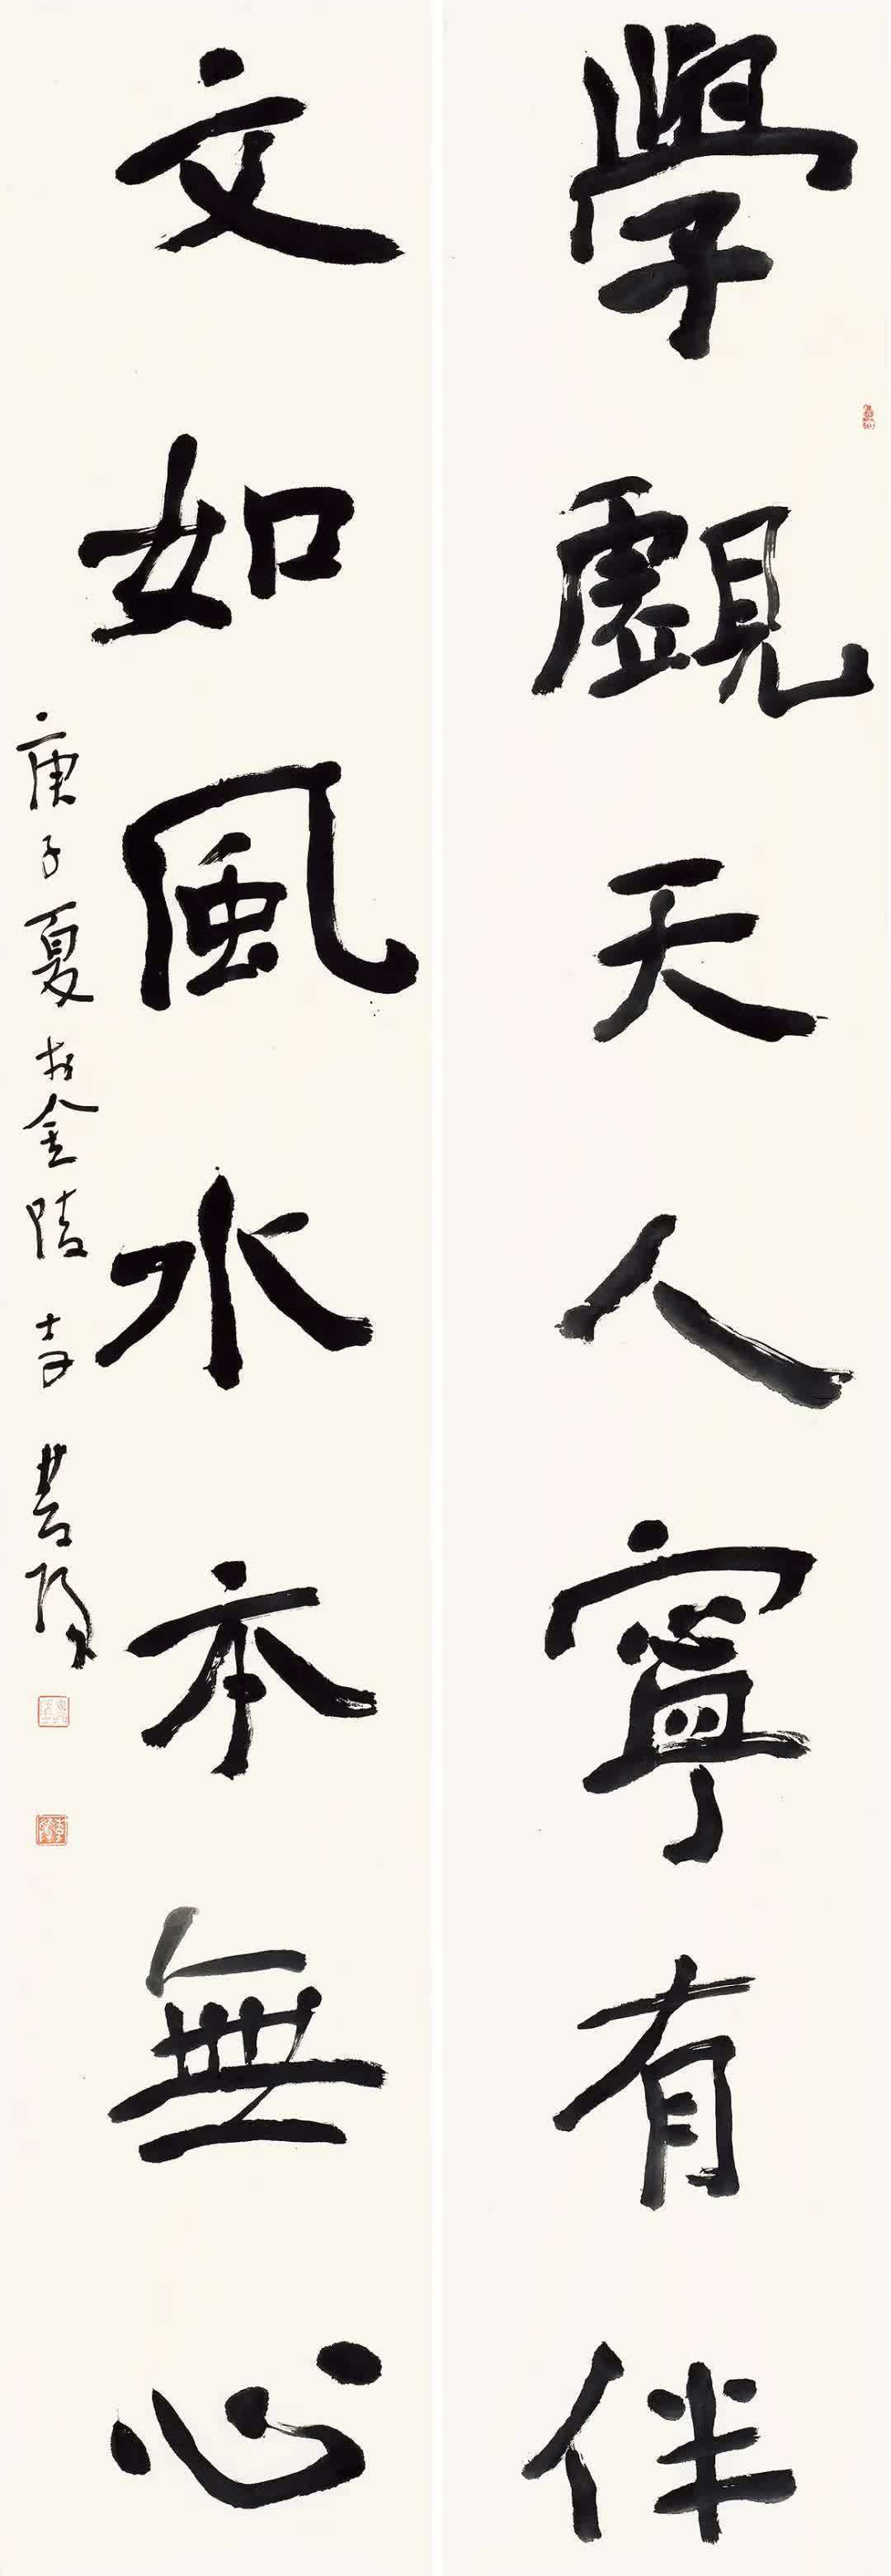 學觑天人寧有伴
文如風水本無心
庚子夏於金陵